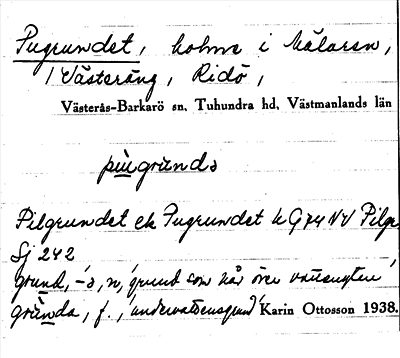 Pugrundet, holme i Mälaren,
Västeräng, Ridö,
Västerås-Barkarö sn, Tuhundra hd, Västmanlands län
pu̲grùndə
Pilgrundet ek Pugrundet k G74 NV Pilgr
Sj 242
grund, -s, n, 'grund som når över vattenytan',
gru̲nda, f., 'undervattensgrund' Karin Ottosson 1938.